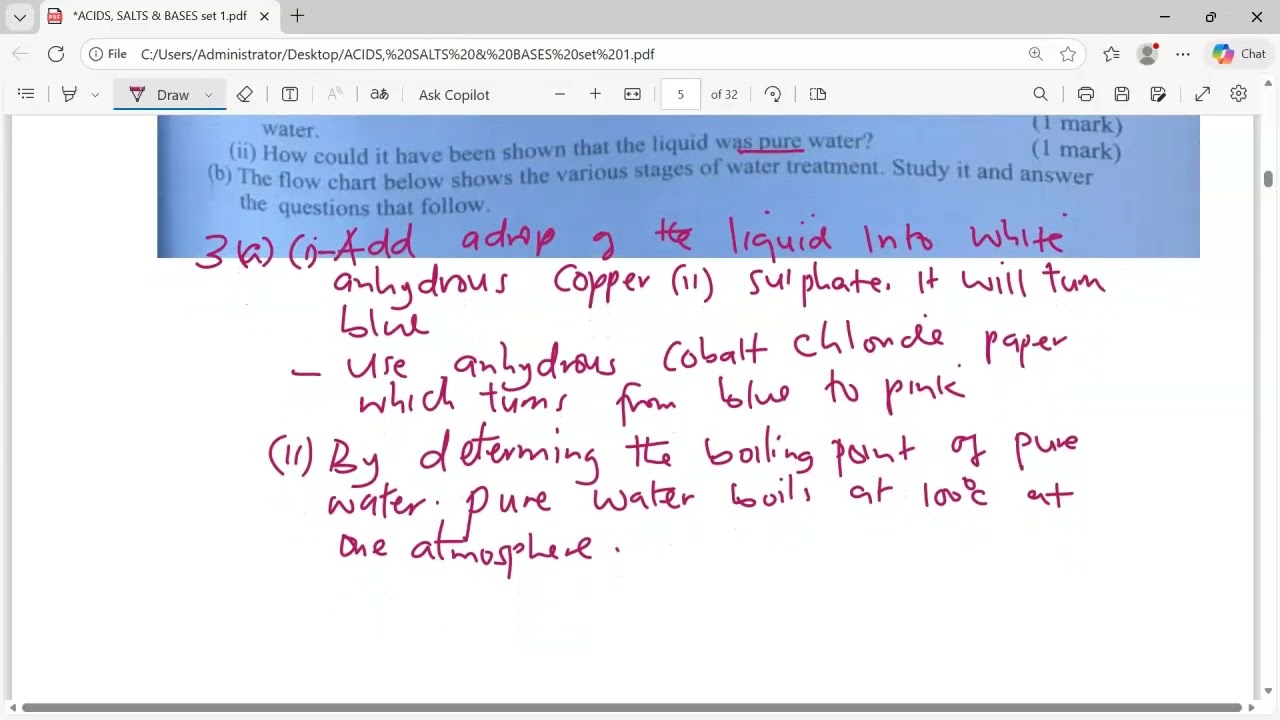 *ACIDS, SALTS & BASES set 1.pdf
File C:/Users/Administrator/Desktop/ACIDS,%20SALTS%20&%20BASES%20set%201.pdf
Chat
Draw
Ask Copilot
5 of 32
water. (1 mark)
(ii) How could it have been shown that the liquid was pure water? (1 mark)
(b) The flow chart below shows the various stages of water treatment. Study it and answer
the questions that follow.
3 (a) (i) - Add a drop of the liquid into white
anhydrous Copper (II) sulphate. It will turn
blue
- Use anhydrous Cobalt chloride paper
which turns from blue to pink
(II) By determining the boiling point of pure
water. pure water boils at 100°c at
one atmosphere.